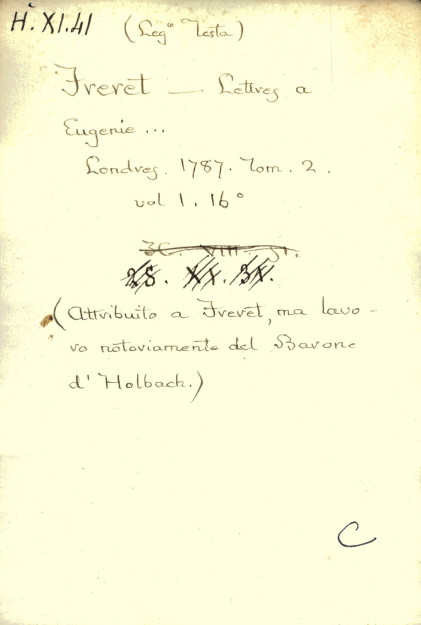 H. XI.41 (Leg° Testa)
Freret — Lettres a
Eugenie ...
Londres. 1787. Tom. 2.
vol 1. 16°
30. VIII. 31.
28. XX. 31.
(Attribuito a Freret, ma lavo-
ro notoriamente del Barone
d'Holbach.)
C